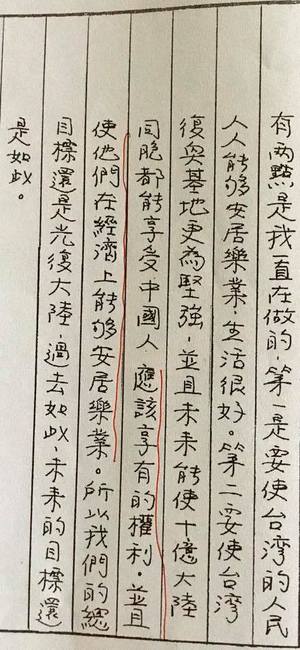 有兩點是我一直在做的，第一是要使台灣的人民
人人能够安居樂業，生活很好。第二要使台灣
復興基地更為堅強，並且未來能使十億大陸
同胞都能享受中國人應該享有的權利，並且
使他們在經濟上能够安居樂業。所以我們的總
目標還是光復大陸，過去如此，未來的目標還
是如此。